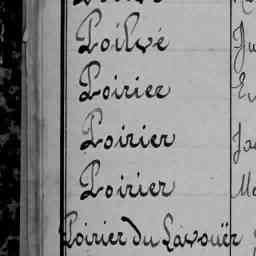 Poilvé
Poirier
Poirier
Poirier
Poirier du Lavouër